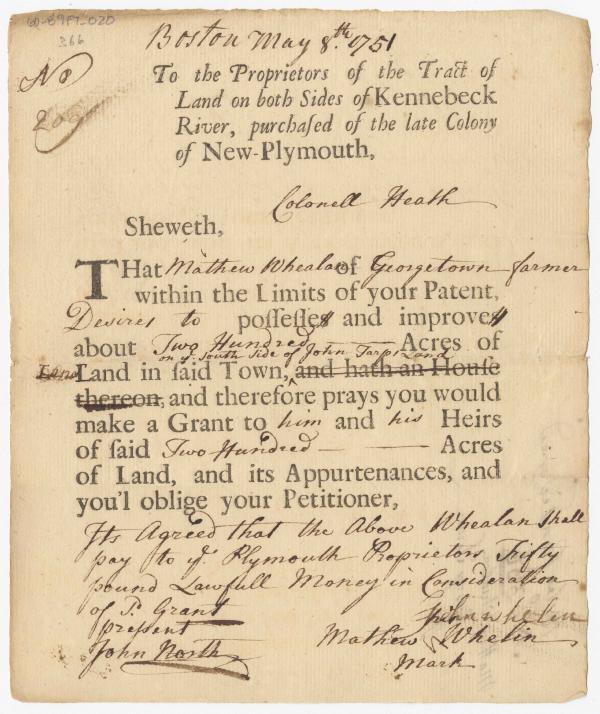 Boston May 8.th 1751
No
To the Proprietors of the Tract of
Land on both Sides of Kennebeck
River, purchaſed of the late Colony
of New-Plymouth,
Colonell Heath
Sheweth,
THat Mathew Whealan of Georgetown farmer
within the Limits of your Patent,
Desires to poſſeſſes and improves
about Two Hundred Acres of
on ye South Side of John Tarps Land
Land in ſaid Town, and hath an Houſe
thereon, and therefore prays you would
make a Grant to him and his Heirs
of ſaid Two Hundred Acres
of Land, and its Appurtenances, and
you'l oblige your Petitioner,
Its Agreed that the Above Whealan shall
pay to ye Plymouth Proprietors Fifty
pound Lawfull Money in Consideration
of sd Grant
present
John North
Mathew Whelin
Mark